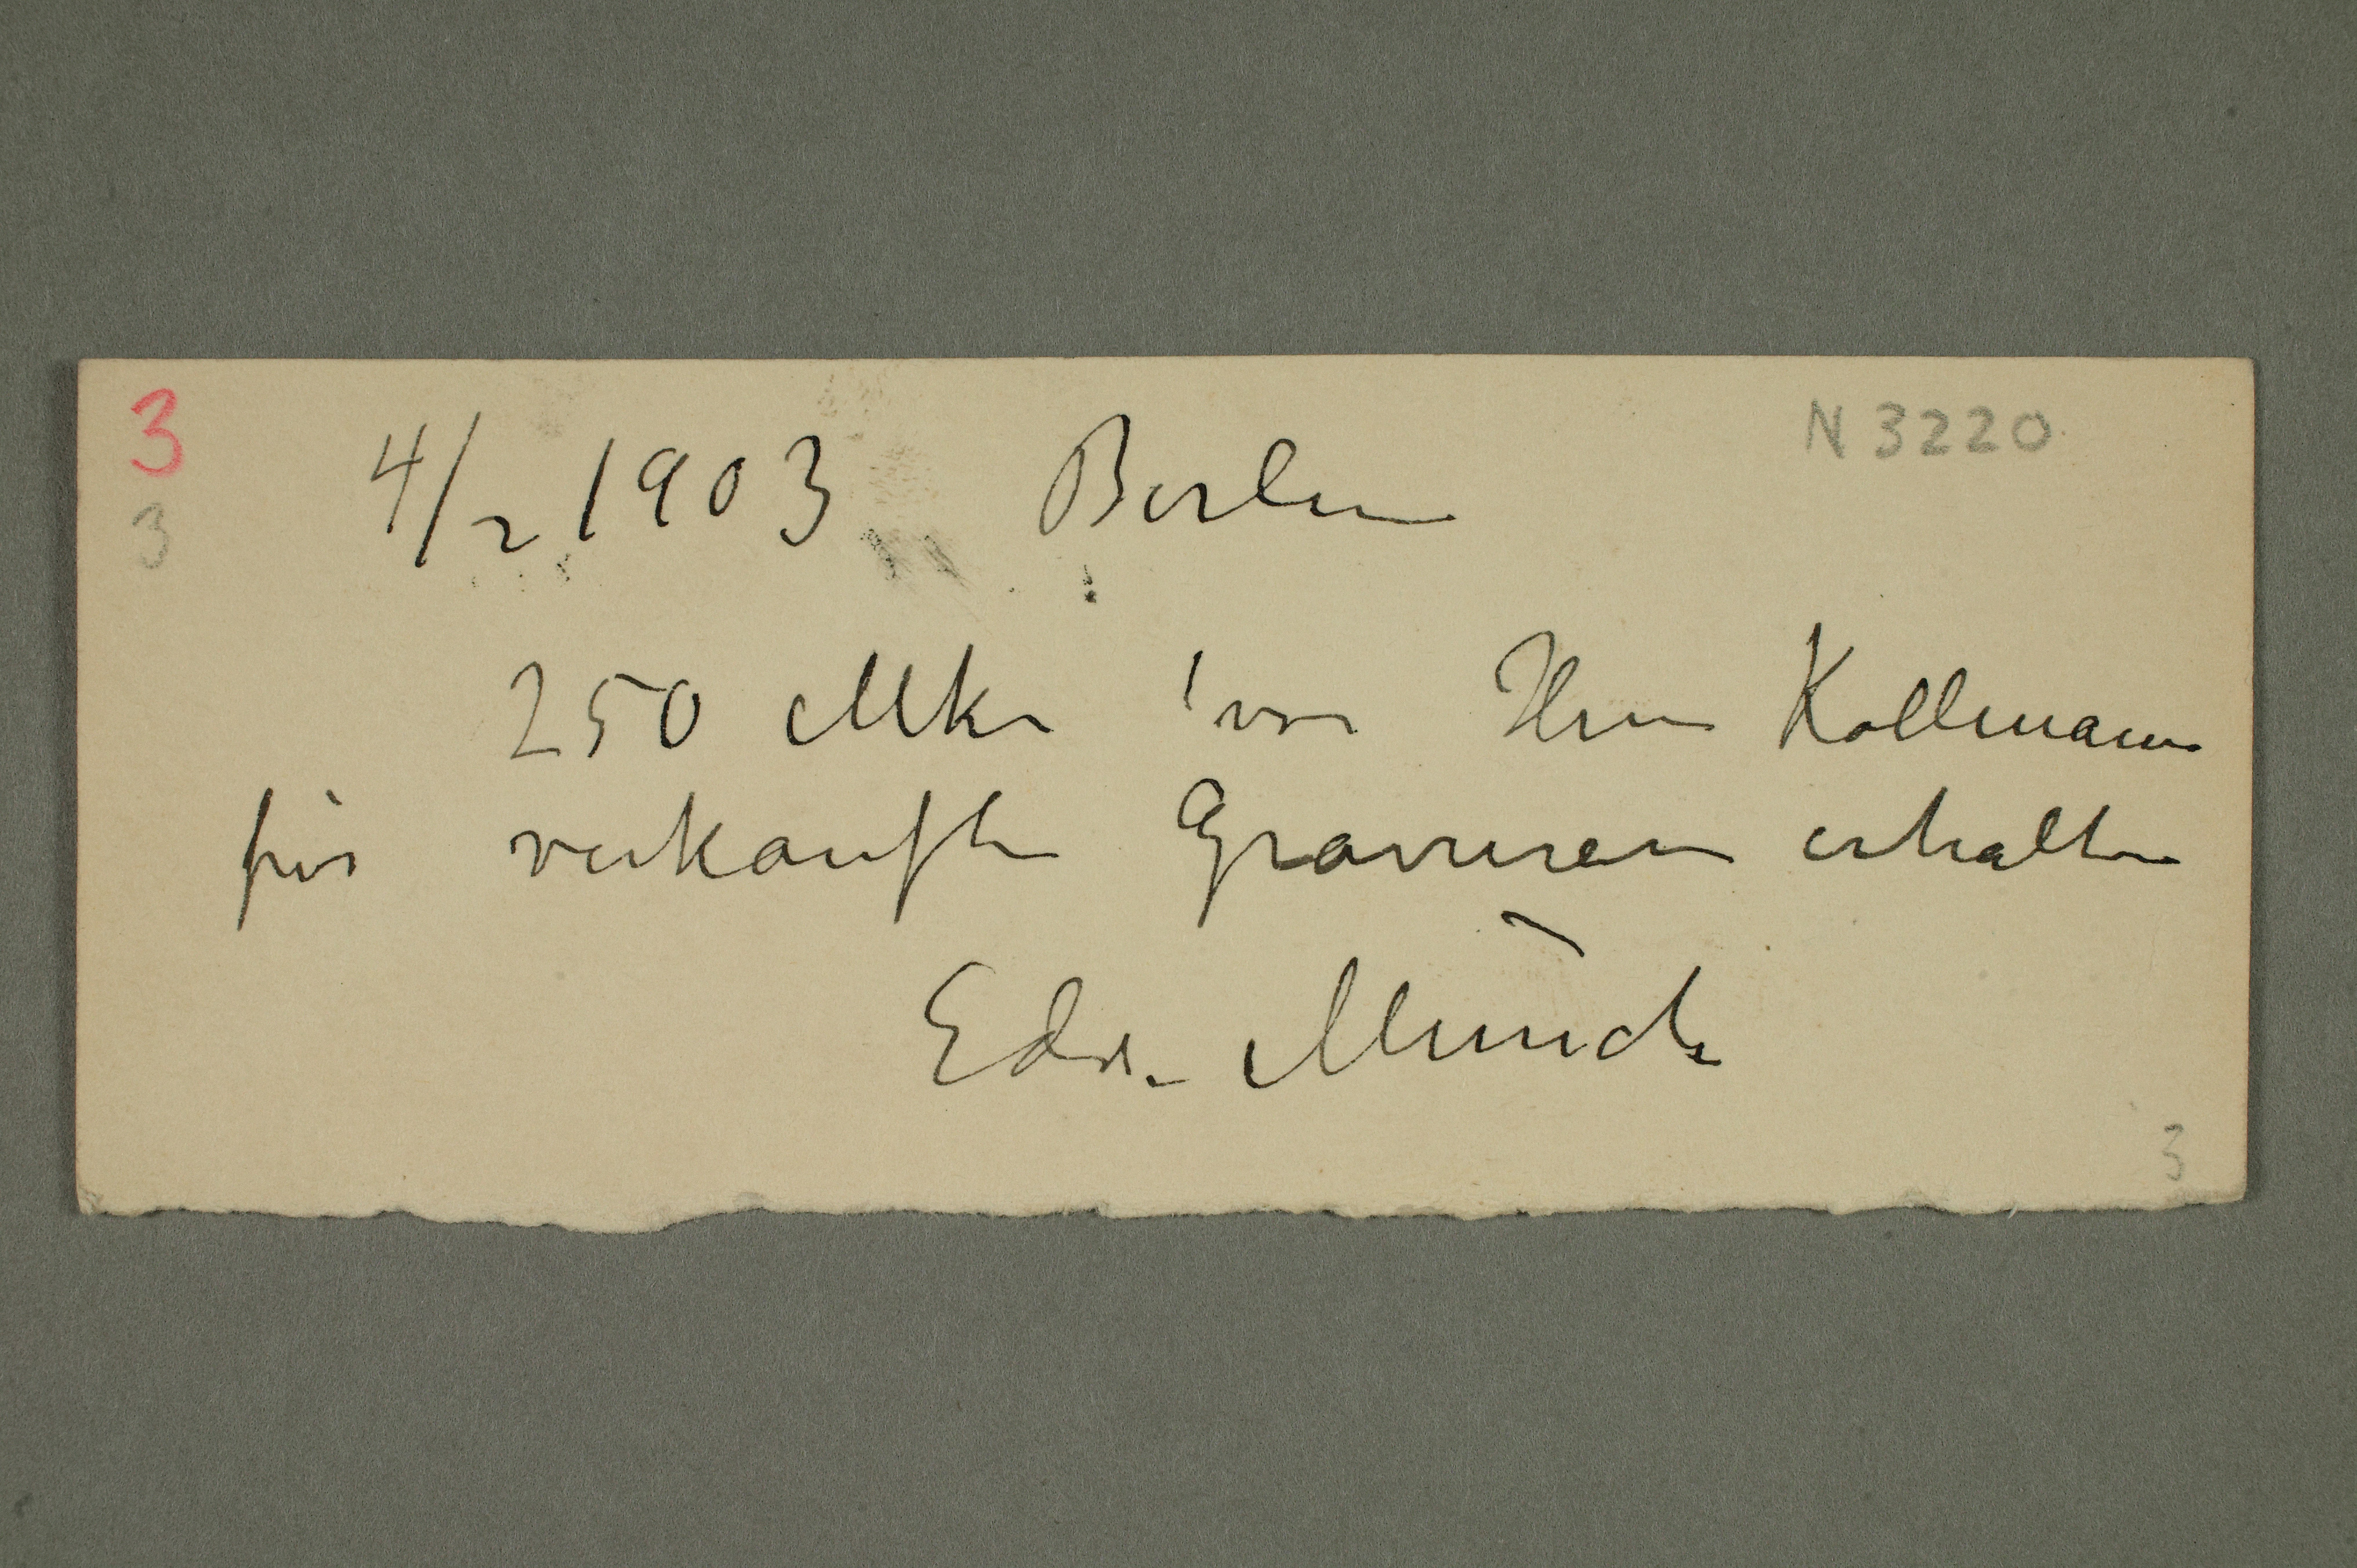 3 N 3220
3
4/2 1903 Berlin
250 Mk von Herrn Kollmann
für verkaufte Gravuren erhalten
Edv. Munch
3